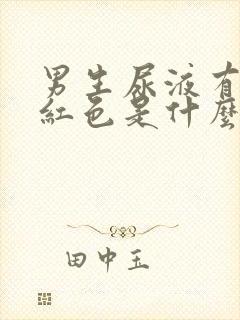 男生尿液有
紅色是什麼
田中玉